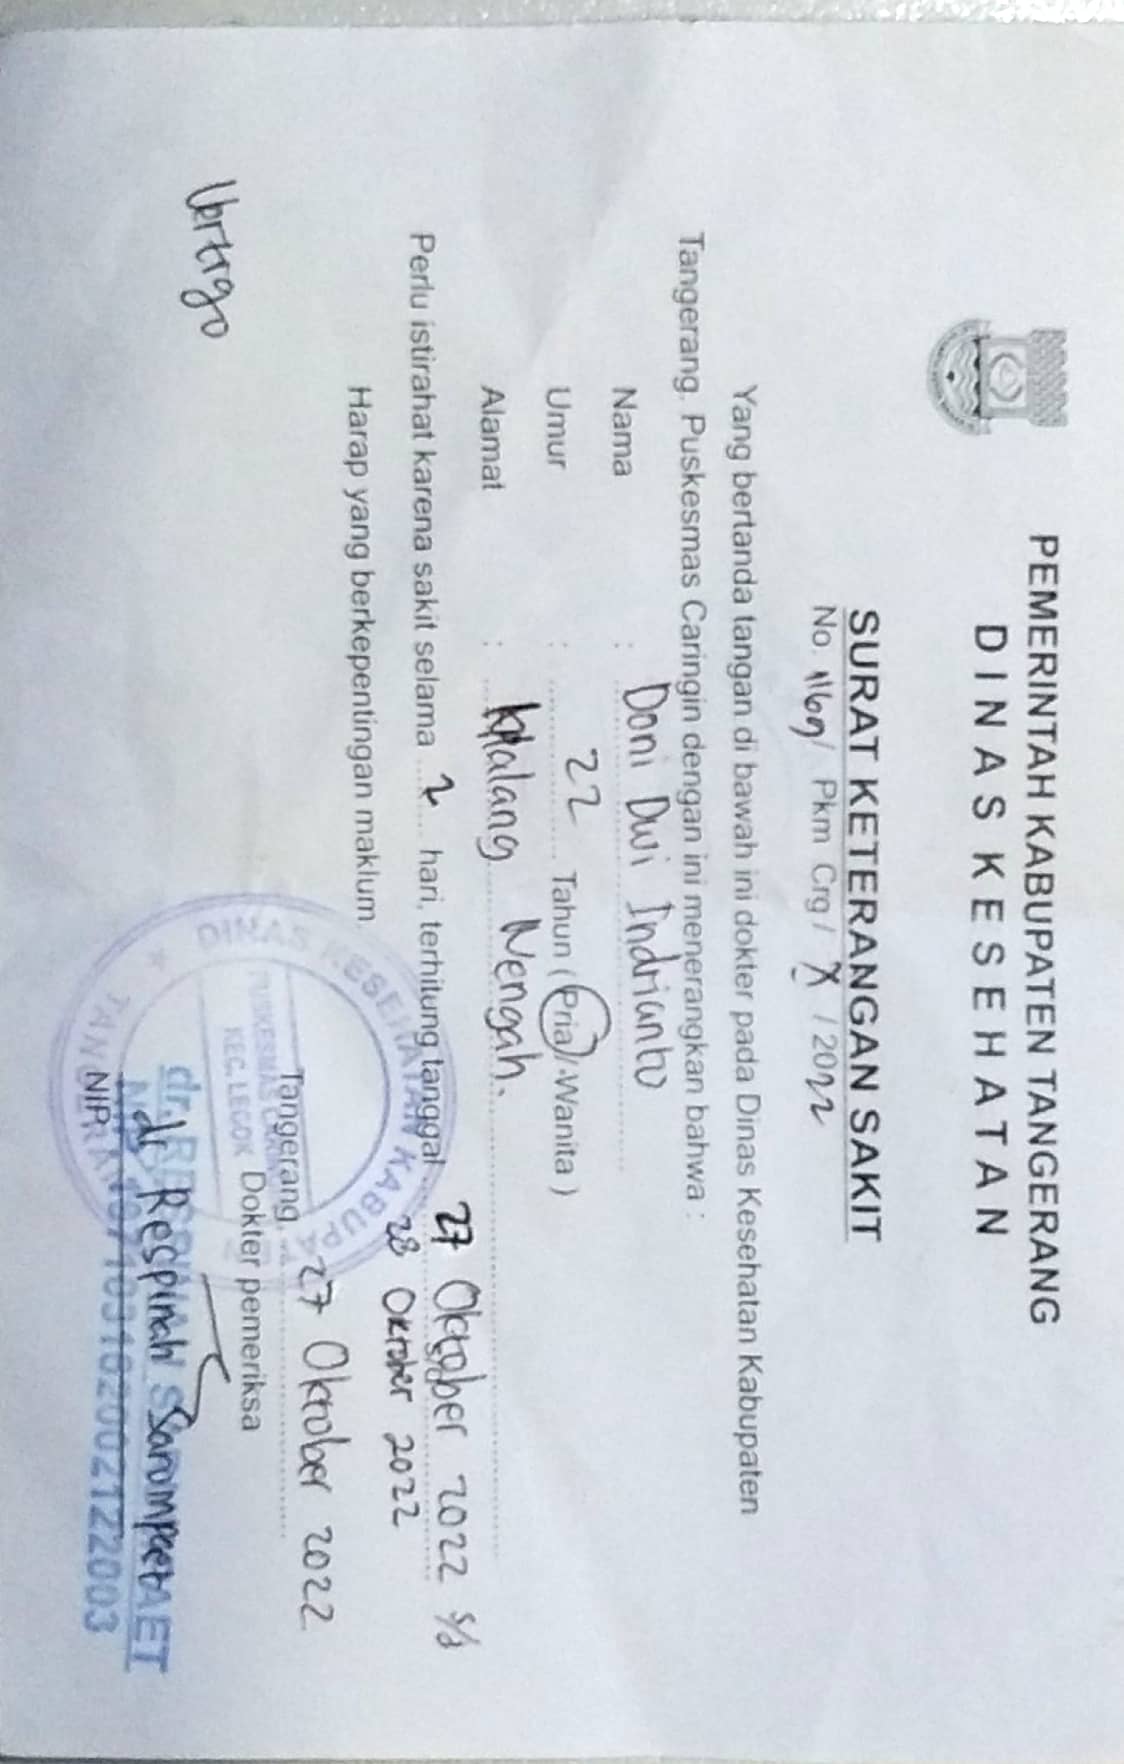 PEMERINTAH KABUPATEN TANGERANG
DINAS KESEHATAN
SURAT KETERANGAN SAKIT
No. 1169/ Pkm Crg / X / 2022
Yang bertanda tangan di bawah ini dokter pada Dinas Kesehatan Kabupaten
Tangerang. Puskesmas Caringin dengan ini menerangkan bahwa :
Nama : Doni Dwi Indrianto
Umur : 22 Tahun ( Pria / Wanita )
Alamat : Malang Nengah.
Perlu istirahat karena sakit selama 2 hari, terhitung tanggal 27 Oktober 2022 s/d
28 Oktober 2022
Harap yang berkepentingan maklum.
Tangerang, 27 Oktober 2022
Dokter pemeriksa
Vertigo
DINAS KESEHATAN KABUPA
TANG
KEC. LEGOK
dr Respinah Sarumpaet
NIP.